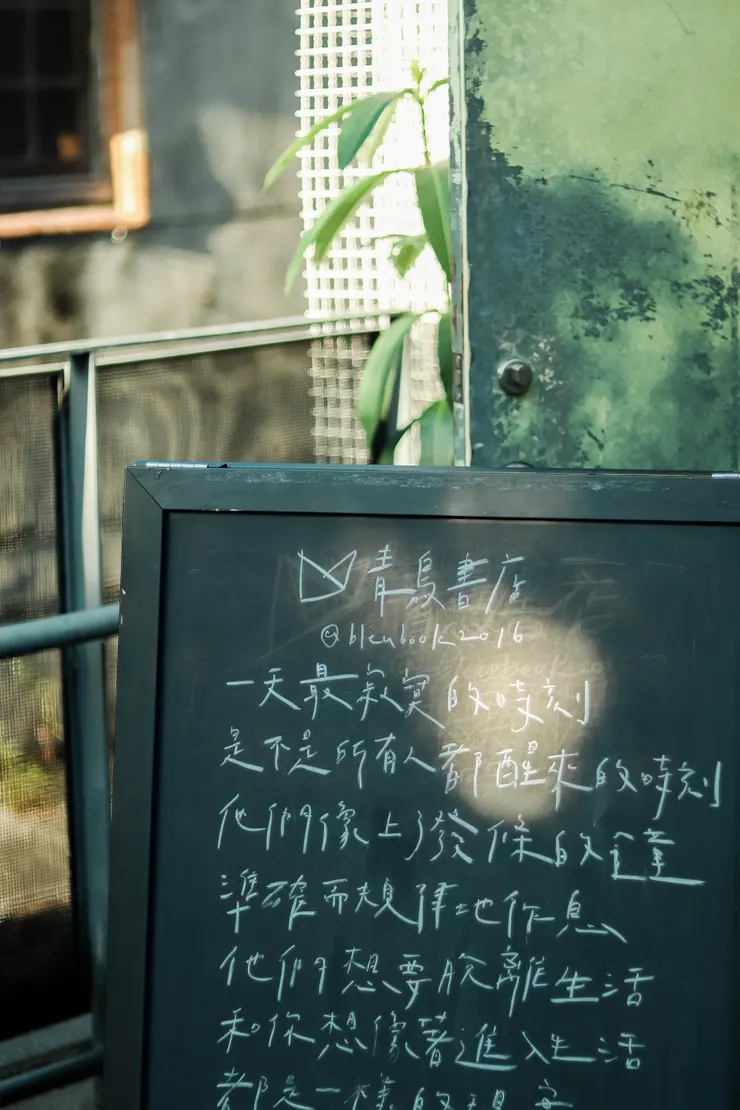 青鳥書店
@bleubook2016
一天最寂寞的時刻
是不是所有人都醒來的時刻
他們像上了發條的
準確而規律地作息
他們想要脫離生活
和你想像著進入生活
都是一樣的